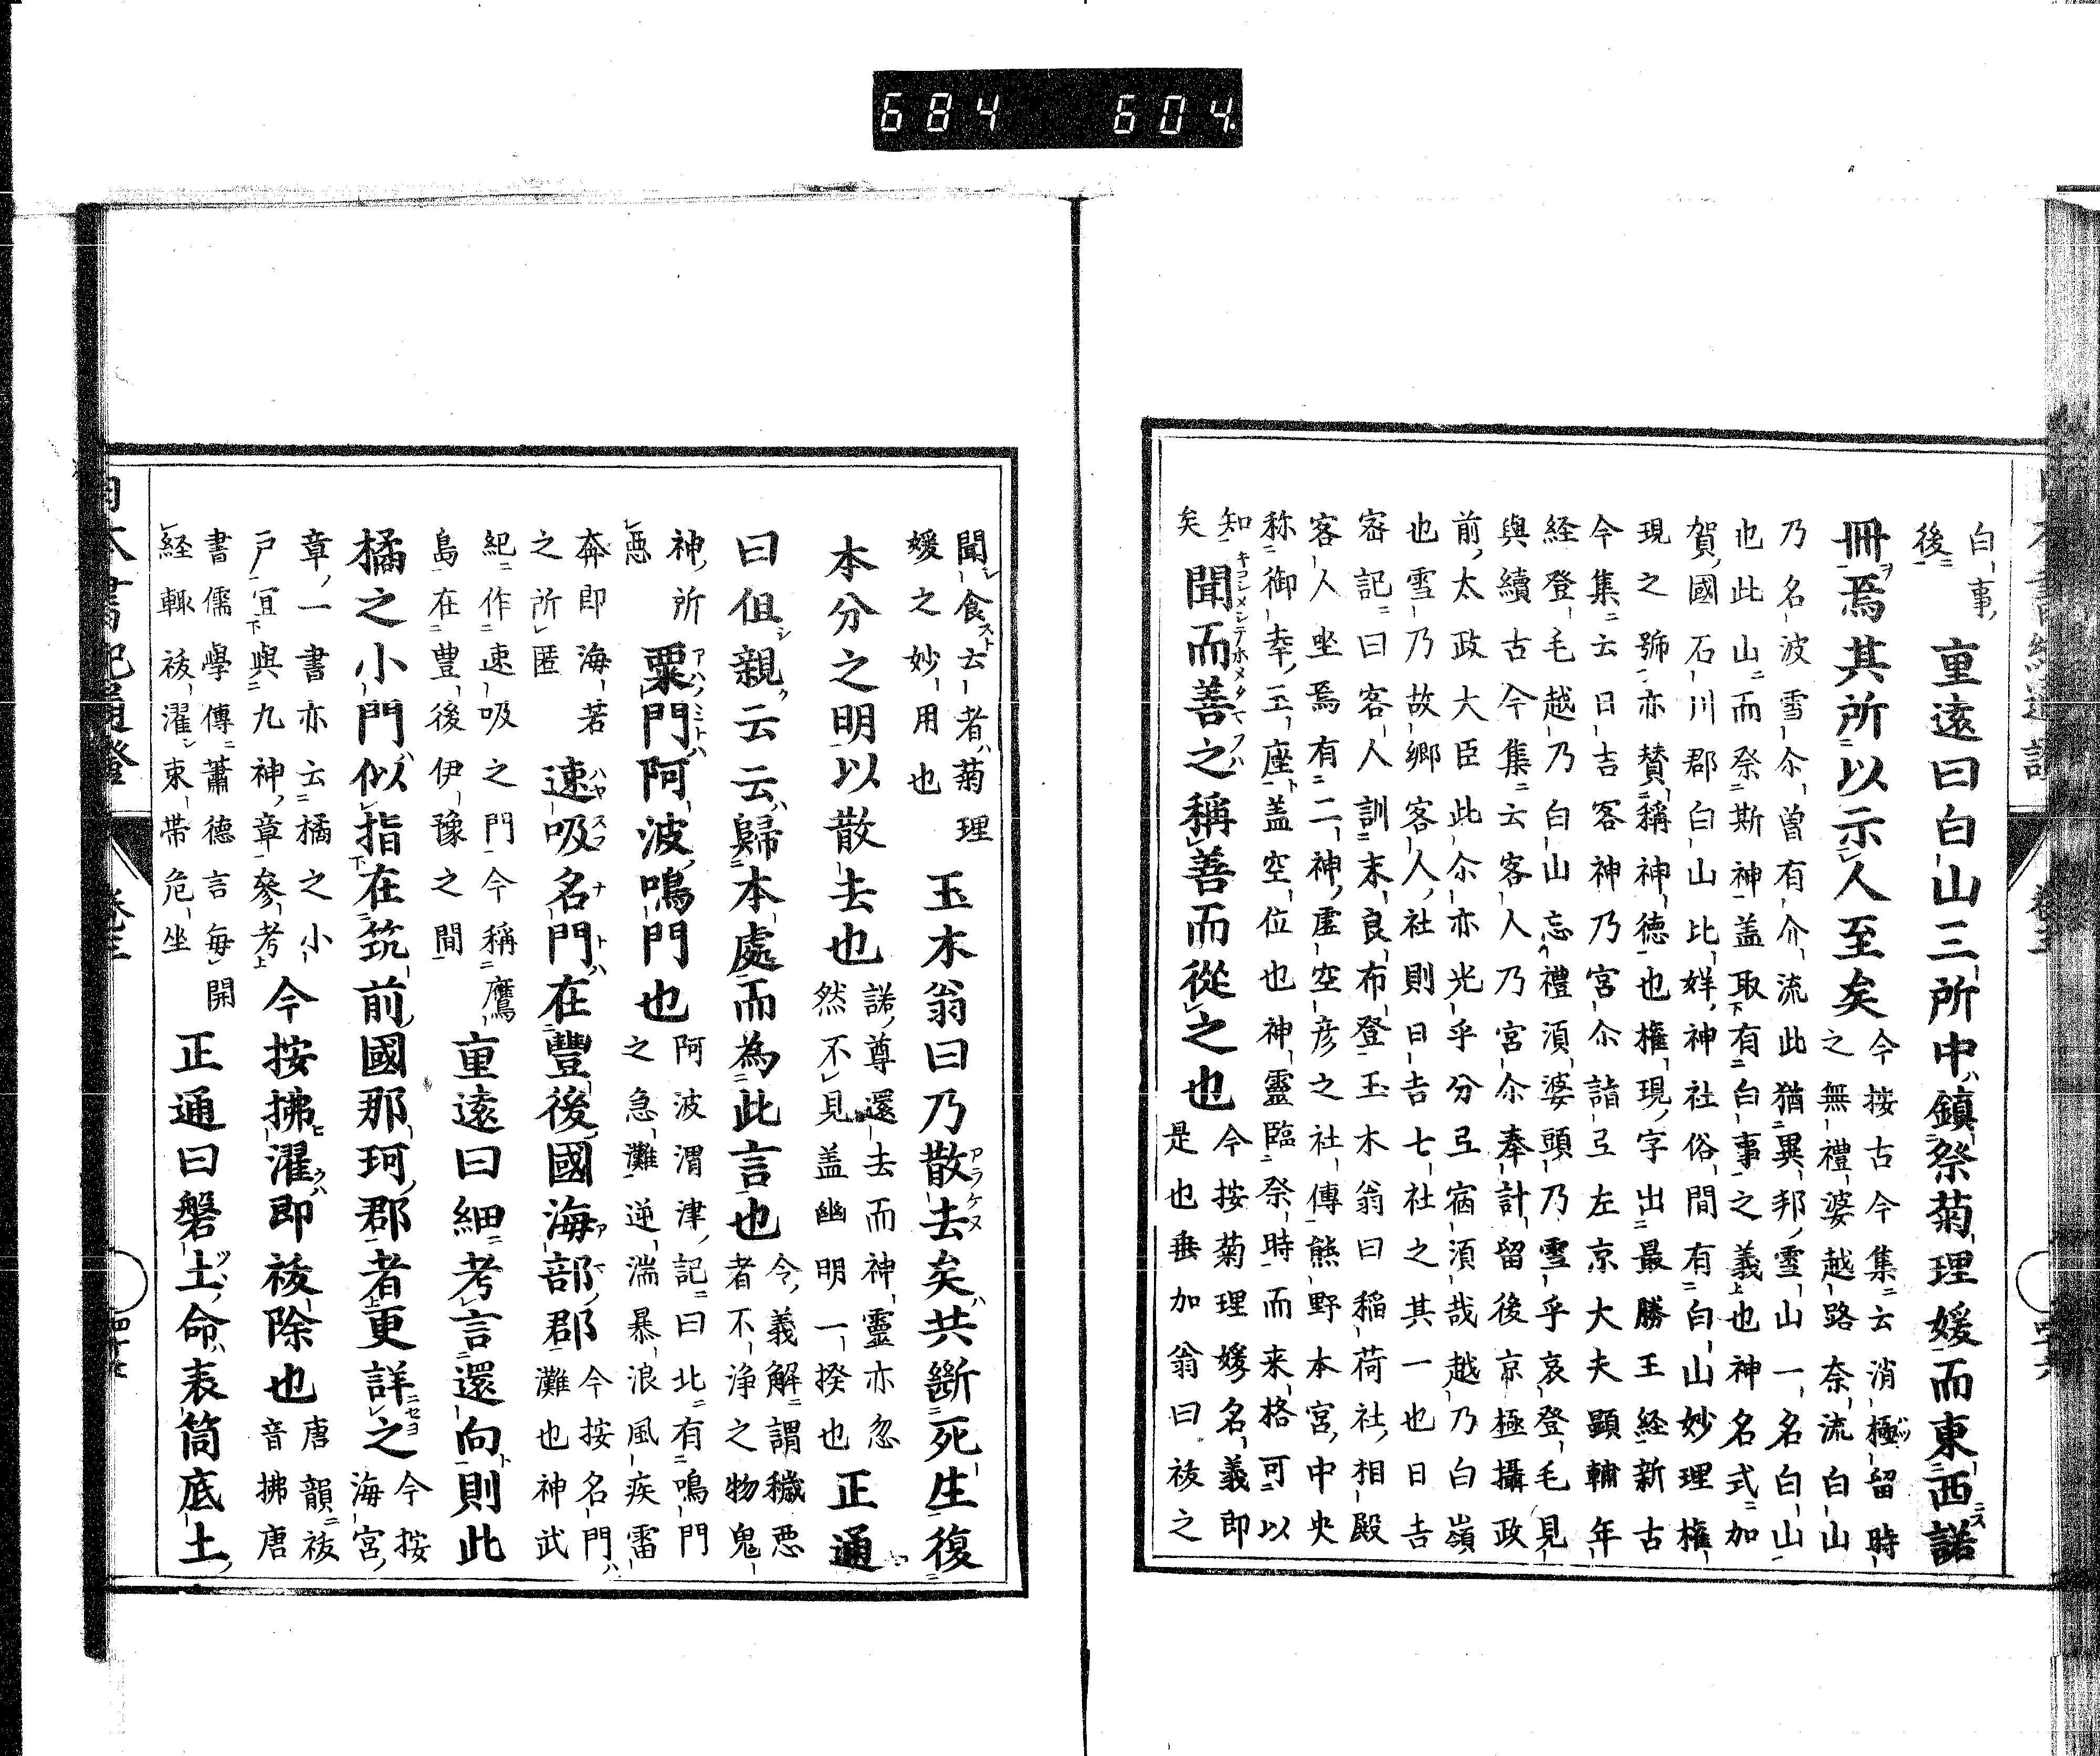 白事
後
重遠曰白山三所中鎮祭菊理媛而東西諾
冊焉其所以示人至矣
今按古今集云消極留時
之無禮婆越路奈流白山
乃名波雪尒曾有介流此猶異邦雪山一名白山
也此山而祭斯神蓋取有白事之義也神名式加
賀國石川郡白山比咩神社俗間有白山妙理権
現之號亦賛稱神徳也権現字出最勝王経新古
今集云日吉客神乃宮尒詣弖左京大夫顕輔年
経登毛越乃白山忘禮湏婆頭乃雪乎哀登毛見
與續古今集云客人乃宮尒奉計留後京極攝政
前太政大臣此尒亦光乎分弖宿湏哉越乃白嶺
也雪乃故郷客人社則日吉七社之其一也日吉
宻記曰客人訓末良布登玉木翁曰稲荷社相殿
客人坐焉有二神虛空彦之社傳熊野本宮中央
称御幸玉座蓋空位也神靈臨祭時而来格可以
知
矣
聞而善之稱善而從之也
今按菊理媛名義即
是也垂加翁曰祓之
聞食云者菊理
媛之妙用也
玉木翁曰乃散去矣共斷死生復
本分之明以散去也
諾尊還去而神靈亦忽
然不見蓋幽明一揆也
正通
曰但親云云歸本處而為此言也
令義解謂穢悪
者不浄之物鬼
神所
悪
粟門阿波鳴門也
阿波渭津記曰北有鳴門
之急灘逆湍暴浪風疾雷
奔即海若
之所匿
速吸名門在豐後國海部郡
今按名門
灘也神武
紀作速吸之門今稱鷹
島在豊後伊豫之間
重遠曰細考言還向則此
橘之小門似指在筑前國那珂郡者更詳之
今按
海宮
章一書亦云橘之小
戸宜與九神章參考
今按拂濯即祓除也
唐韻祓
音拂唐
書儒學傳蕭德言毎開
経輙祓濯束帯危坐
正通曰磐土命表筒底土
684 604